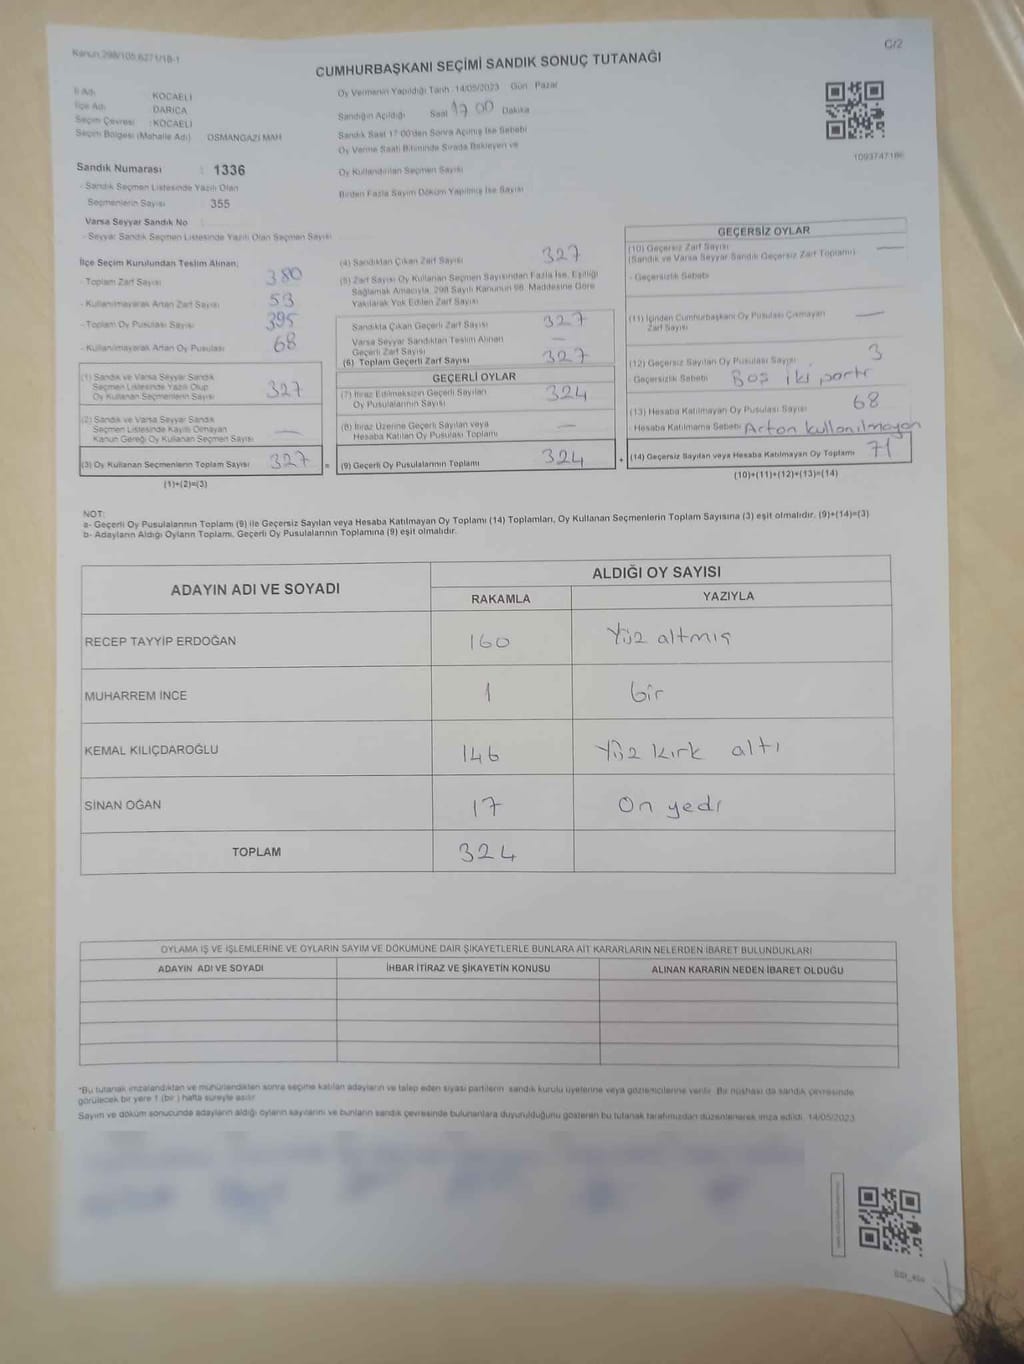 Kanun:298/105;6271/18-1
C/2
CUMHURBAŞKANI SEÇİMİ SANDIK SONUÇ TUTANAĞI
İl Adı : KOCAELİ
İlçe Adı : DARICA
Seçim Çevresi : KOCAELİ
Seçim Bölgesi (Mahalle Adı) : OSMANGAZİ MAH
Sandık Numarası : 1336
- Sandık Seçmen Listesinde Yazılı Olan
Seçmenlerin Sayısı 355
Varsa Seyyar Sandık No
- Seyyar Sandık Seçmen Listesinde Yazılı Olan Seçmen Sayısı
Oy Vermenin Yapıldığı Tarih : 14/05/2023 Gün : Pazar
Sandığın Açıldığı Saat 17 00 Dakika
Sandık Saat 17:00'den Sonra Açılmış İse Sebebi
Oy Verme Saati Bitiminde Sırada Bekleyen ve
Oy Kullandırılan Seçmen Sayısı
Birden Fazla Sayım Döküm Yapılmış İse Sayısı
İlçe Seçim Kurulundan Teslim Alınan;
- Toplam Zarf Sayısı 380
- Kullanılmayarak Artan Zarf Sayısı 53
- Toplam Oy Pusulası Sayısı 395
- Kullanılmayarak Artan Oy Pusulası 68
(1) Sandık ve Varsa Seyyar Sandık
Seçmen Listesinde Yazılı Olup
Oy Kullanan Seçmenlerin Sayısı 327
(2) Sandık ve Varsa Seyyar Sandık
Seçmen Listesinde Kayıtlı Olmayan
Kanun Gereği Oy Kullanan Seçmen Sayısı —
(3) Oy Kullanan Seçmenlerin Toplam Sayısı 327
(1)+(2)=(3)
(4) Sandıktan Çıkan Zarf Sayısı 327
(5) Zarf Sayısı Oy Kullanan Seçmen Sayısından Fazla İse, Eşitliği
Sağlamak Amacıyla, 298 Sayılı Kanunun 98. Maddesine Göre
Yakılarak Yok Edilen Zarf Sayısı
Sandıkta Çıkan Geçerli Zarf Sayısı 327
Varsa Seyyar Sandıktan Teslim Alınan
Geçerli Zarf Sayısı —
(6) Toplam Geçerli Zarf Sayısı 327
GEÇERLİ OYLAR
(7) İtiraz Edilmeksizin Geçerli Sayılan
Oy Pusulalarının Sayısı 324
(8) İtiraz Üzerine Geçerli Sayılan veya
Hesaba Katılan Oy Pusulası Toplamı —
= (9) Geçerli Oy Pusulalarının Toplamı 324 +
GEÇERSİZ OYLAR
(10) Geçersiz Zarf Sayısı —
(Sandık ve Varsa Seyyar Sandık Geçersiz Zarf Toplamı)
- Geçersizlik Sebebi
(11) İçinden Cumhurbaşkanı Oy Pusulası Çıkmayan
Zarf Sayısı —
(12) Geçersiz Sayılan Oy Pusulası Sayısı 3
Geçersizlik Sebebi Boş iki parti
(13) Hesaba Katılmayan Oy Pusulası Sayısı 68
- Hesaba Katılmama Sebebi Artan kullanılmayan
(14) Geçersiz Sayılan veya Hesaba Katılmayan Oy Toplamı 71
(10)+(11)+(12)+(13)=(14)
NOT:
a- Geçerli Oy Pusulalarının Toplamı (9) ile Geçersiz Sayılan veya Hesaba Katılmayan Oy Toplamı (14) Toplamları, Oy Kullanan Seçmenlerin Toplam Sayısına (3) eşit olmalıdır. (9)+(14)=(3)
b- Adayların Aldığı Oyların Toplamı, Geçerli Oy Pusulalarının Toplamına (9) eşit olmalıdır.
ADAYIN ADI VE SOYADI
ALDIĞI OY SAYISI
RAKAMLA YAZIYLA
RECEP TAYYİP ERDOĞAN 160 Yüz altmış
MUHARREM İNCE 1 bir
KEMAL KILIÇDAROĞLU 146 Yüz kırk altı
SİNAN OĞAN 17 On yedi
TOPLAM 324
OYLAMA İŞ VE İŞLEMLERİNE VE OYLARIN SAYIM VE DÖKÜMÜNE DAİR ŞİKAYETLERLE BUNLARA AİT KARARLARIN NELERDEN İBARET BULUNDUKLARI
ADAYIN ADI VE SOYADI İHBAR İTİRAZ VE ŞİKAYETİN KONUSU ALINAN KARARIN NEDEN İBARET OLDUĞU
*Bu tutanak imzalandıktan ve mühürlendikten sonra seçime katılan adayların ve talep eden siyasi partilerin sandık kurulu üyelerine veya gözlemcilerine verilir. Bir nüshası da sandık çevresinde
görülecek bir yere 1 (bir) hafta süreyle asılır.
Sayım ve döküm sonucunda adayların aldığı oyların sayılarını ve bunların sandık çevresinde bulunanlara duyurulduğunu gösteren bu tutanak tarafımızdan düzenlenerek imza edildi. 14/05/2023